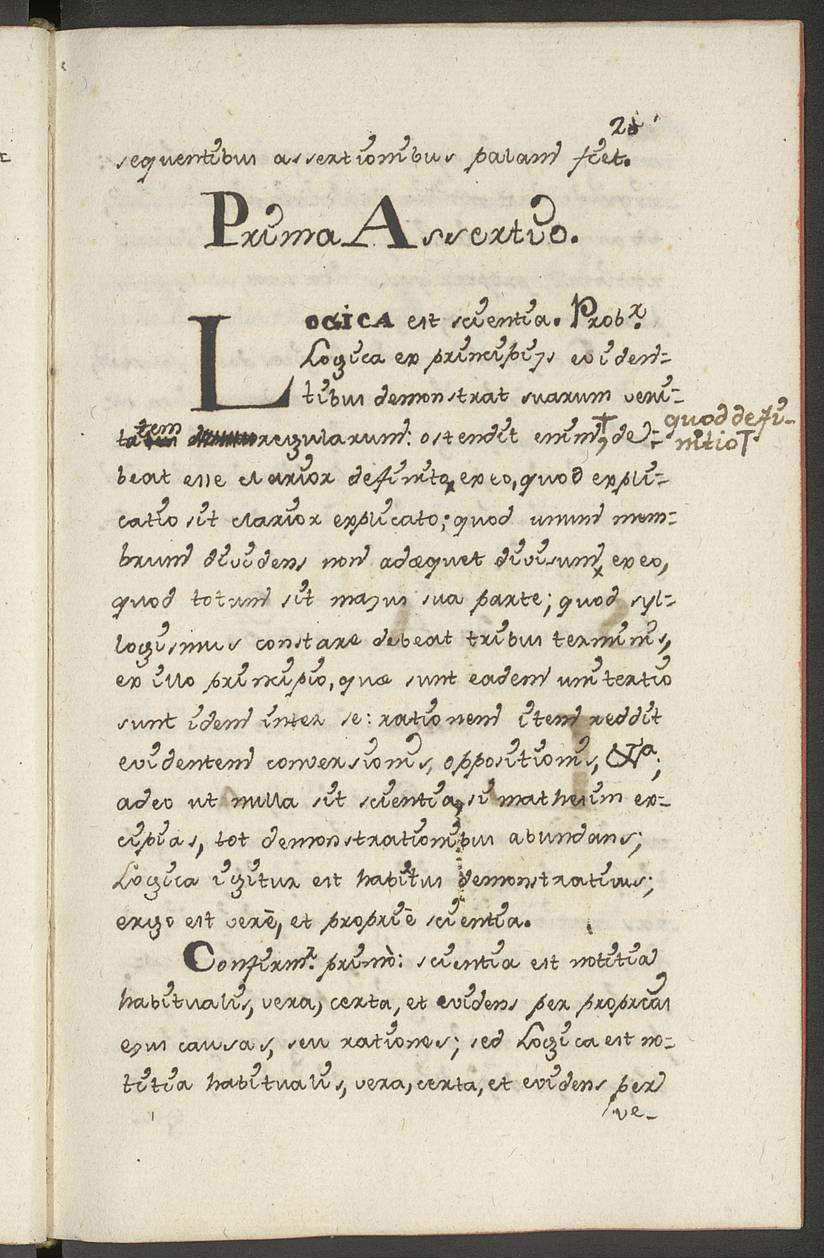 sequentibus assertionibus palam fiet.
Prima Assertio.
LOGICA est scientia. Probr.
Logica ex principijs eviden=
tibus demonstrat suarum veri=
tatem regularum: ostendit enim, † de=
quod defi-
nitio †
beat esse clarior definito, ex eo, quod expli=
catio sit clarior explicato; quod unum mem=
brum dividens non adæquet divisum, ex eo,
quod totum sit majus sua parte; quod syl=
logismus constare debeat tribus terminis,
ex illo principio, quæ sunt eadem uni tertio
sunt idem inter se: rationem item reddit
evidentem conversionis, oppositionis, &a;
adeo ut nulla sit scientia, si mathesim ex=
cipias, tot demonstrationibus abundans;
Logica igitur est habitus demonstrativus;
ergo est verè, et propriè scientia.
Confirmr. primò: scientia est notitia
habitualis, vera, certa, et evidens per proprias
ejus causas, seu rationes; sed Logica est no=
titia habitualis, vera, certa, et evidens per
ve-